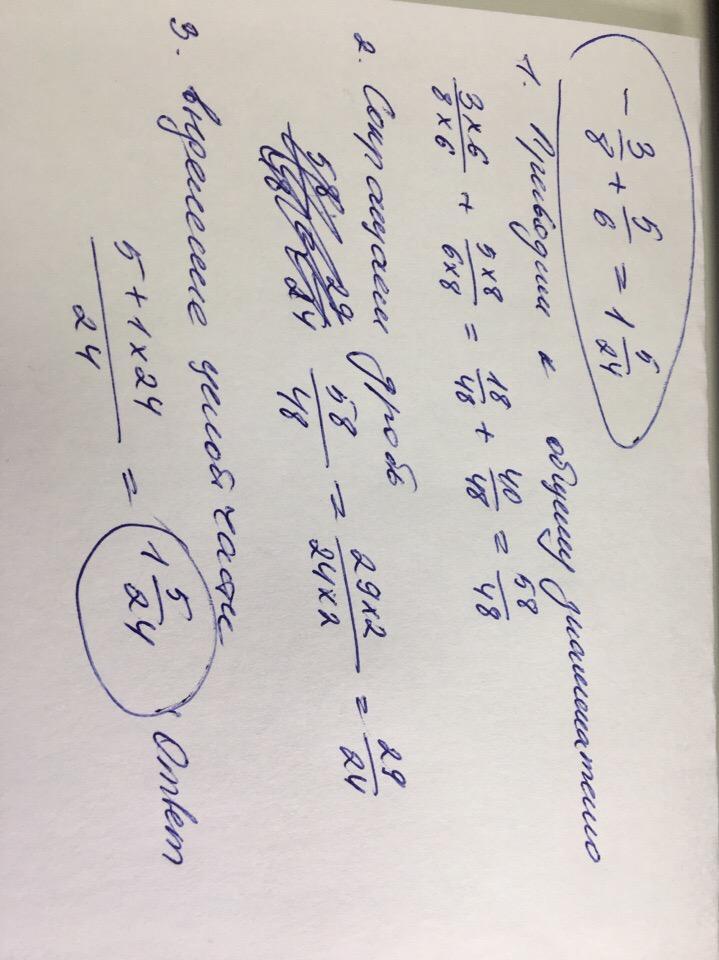 - 3/8 + 5/6 = 1 5/24
1. Приводим к общему знаменателю
3×6/8×6 + 5×8/6×8 = 18/48 + 40/48 = 58/48
2. Сокращаем дробь
58/48 = 29×2/24×2 = 29/24
3. целой части
5+1×24/24 = 1 5/24 Ответ